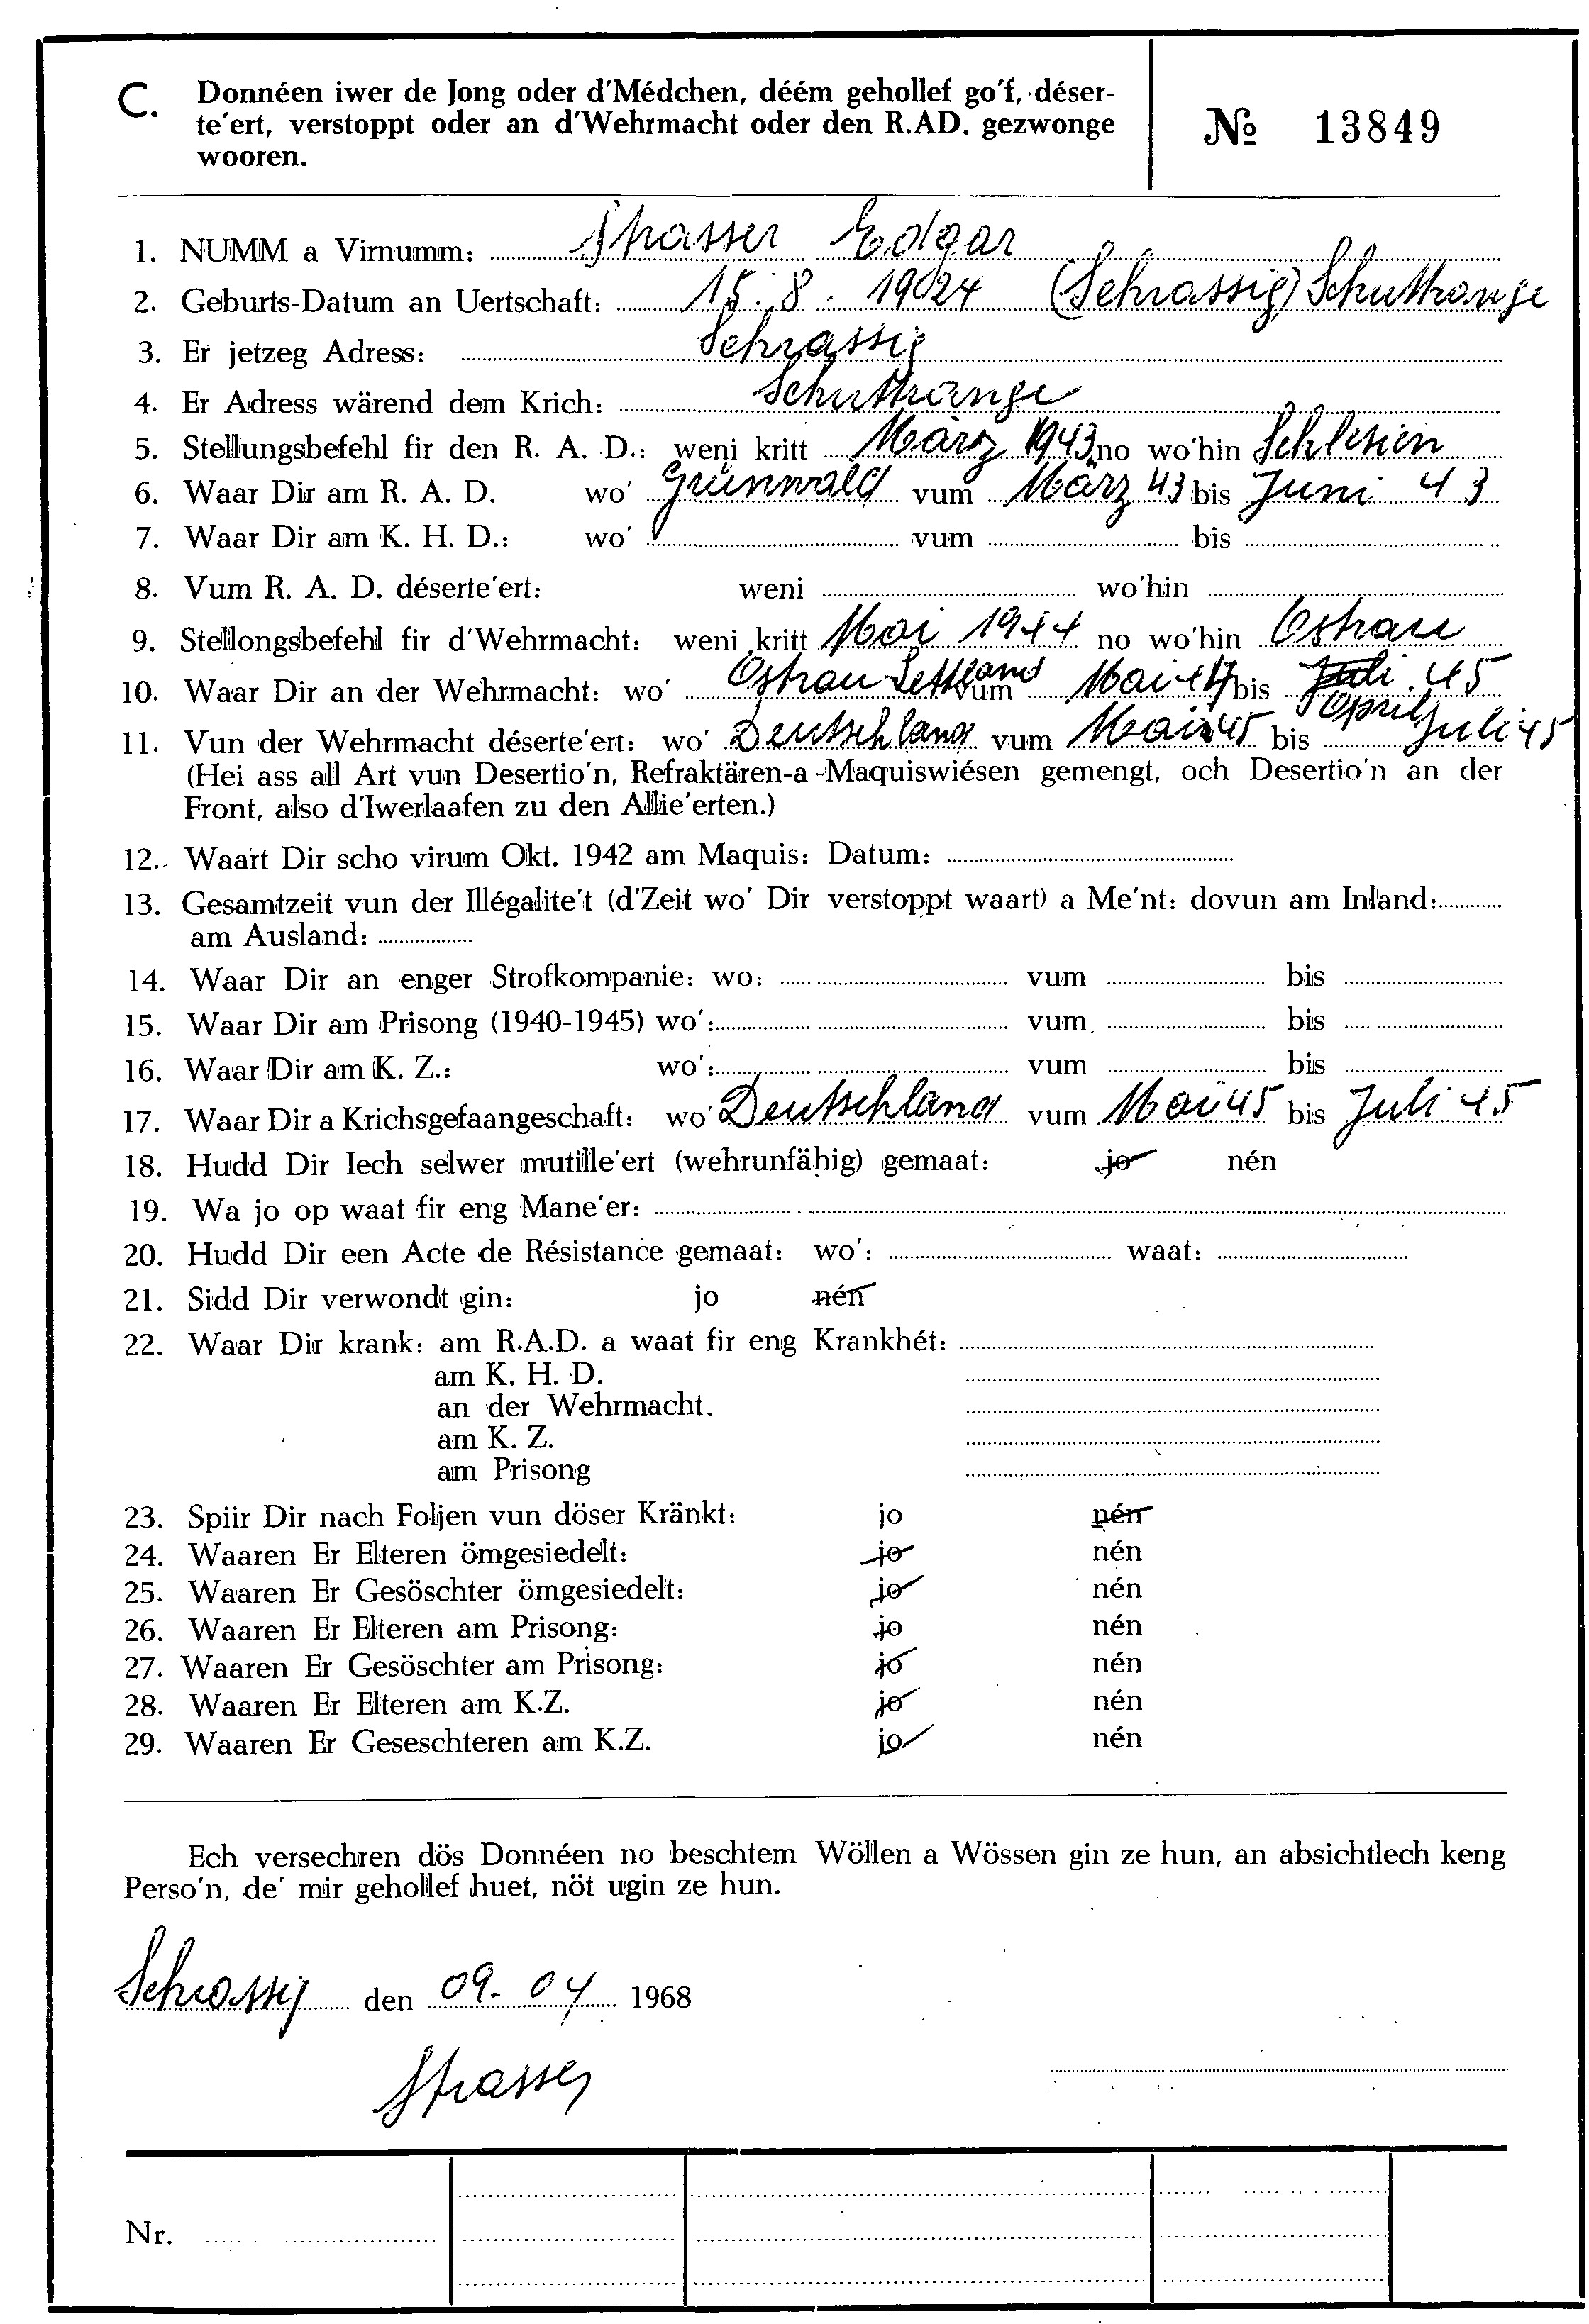 C. Donnéen iwer de Jong oder d'Médchen, déém gehollef go'f, déser-
te'ert, verstoppt oder an d'Wehrmacht oder den R.AD. gezwonge
wooren.
№ 13849
1. NUMM a Virnumm: Strasser Edgar
2. Geburts-Datum an Uertschaft: 15. 8. 1924 (Schrassig) Schuttrange
3. Er jetzeg Adress: Schrassig
4. Er Adress wärend dem Krich: Schuttrange
5. Stellungsbefehl fir den R. A. D.: weni kritt März 1943 no wo'hin Schlesien
6. Waar Dir am R. A. D. wo' Grünwald vum März 43 bis Juni 43
7. Waar Dir am K. H. D.: wo' vum bis
8. Vum R. A. D. déserte'ert: weni wo'hin
9. Stellongsbefehl fir d'Wehrmacht: weni kritt Mai 1944 no wo'hin Ostrau
10. Waar Dir an der Wehrmacht: wo' Ostrau Lettland vum Mai 44 bis Juli 45 April
11. Vun der Wehrmacht déserte'ert: wo' Deutschland vum Mai 45 bis Juli 45
(Hei ass all Art vun Desertio'n, Refraktären-a-Maquiswiésen gemengt, och Desertio'n an der
Front, also d'Iwerlaafen zu den Allie'erten.)
12. Waart Dir scho virum Okt. 1942 am Maquis: Datum:
13. Gesamtzeit vun der Illégalite't (d'Zeit wo' Dir verstoppt waart) a Me'nt: dovun am Inland:
am Ausland:
14. Waar Dir an enger Strofkompanie: wo: vum bis
15. Waar Dir am Prisong (1940-1945) wo': vum bis
16. Waar Dir am K. Z.: wo': vum bis
17. Waar Dir a Krichsgefaangeschaft: wo' Deutschland vum Mai 45 bis Juli 45
18. Hudd Dir Iech selwer mutille'ert (wehrunfähig) gemaat: jo nén
19. Wa jo op waat fir eng Mane'er:
20. Hudd Dir een Acte de Résistance gemaat: wo': waat:
21. Sidd Dir verwondt gin: jo nén
22. Waar Dir krank: am R.A.D. a waat fir eng Krankhét:
am K. H. D.
an der Wehrmacht.
am K. Z.
am Prisong
23. Spiir Dir nach Foljen vun döser Kränkt: jo nén
24. Waaren Er Elteren ömgesiedelt: jo nén
25. Waaren Er Gesöschter ömgesiedelt: jo nén
26. Waaren Er Elteren am Prisong: jo nén
27. Waaren Er Gesöschter am Prisong: jo nén
28. Waaren Er Elteren am K.Z. jo nén
29. Waaren Er Geseschteren am K.Z. jo nén
Ech versechren dös Donnéen no beschtem Wöllen a Wössen gin ze hun, an absichtlech keng
Perso'n, de' mir gehollef huet, nöt ugin ze hun.
Schrassig den 09. 04 1968
Strasser
Nr.